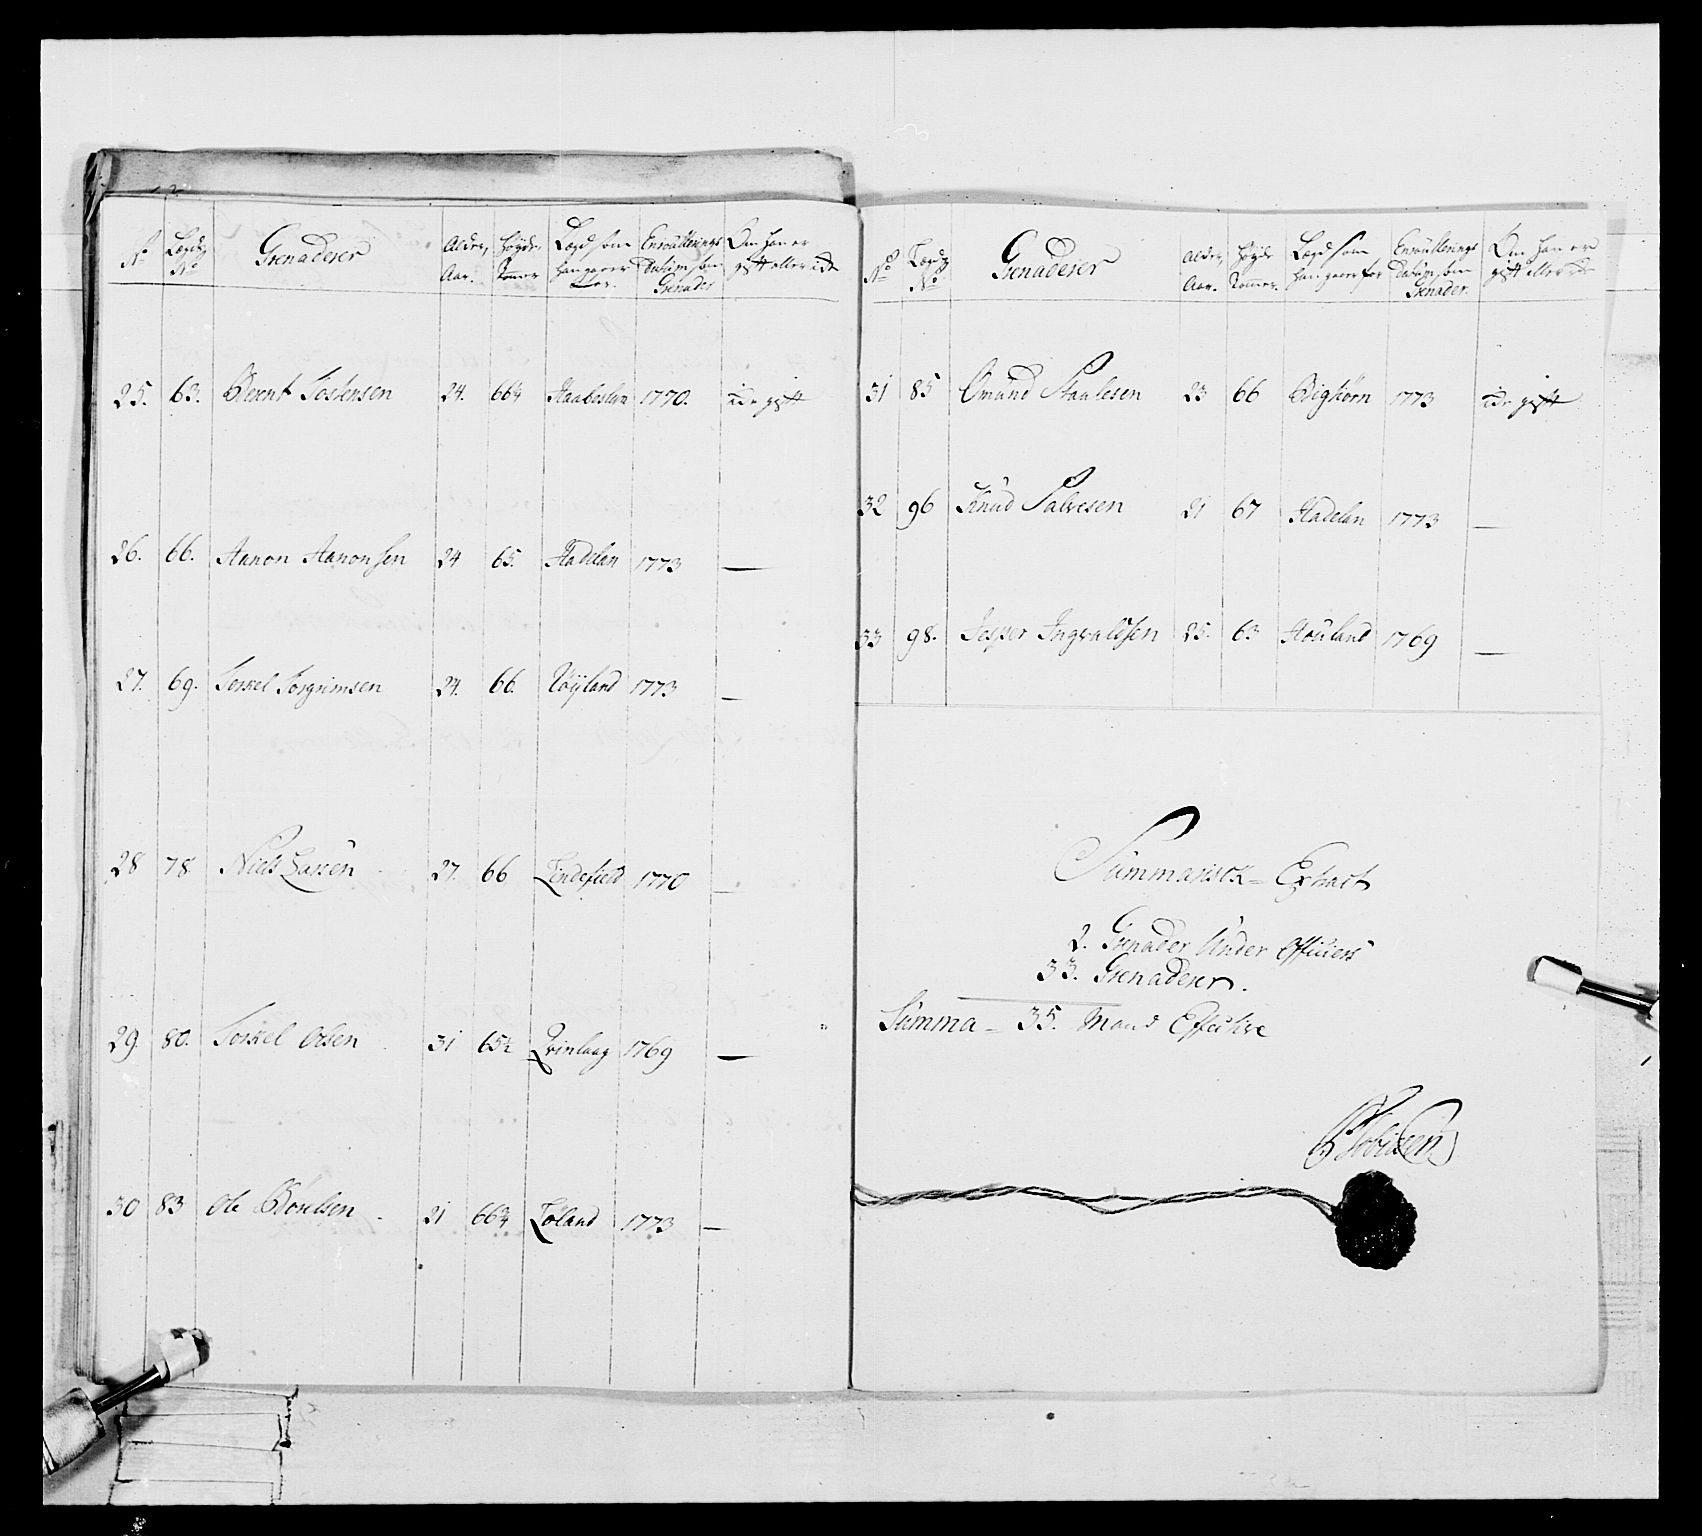 No Lægds No Grenaderer Alder, Aar. Høyde Tomer Lægd som han giører for Enroullerings Datum som Grenader Om han er gift eller icke
25. 63. Berent Tostensen 24. 66¼ Haabeslan 1770. icke gift
26. 66. Aanon Aanonsen 24 65. Hadelan 1773 —
27. 69. Torkel Torgrimsen 24. 66. Røyland 1773 —
28 78 Niels Larsen 27. 66 Lindefield 1770 —
29. 80. Torkel Olsen 31 65½ Qvinlaag 1769 —
30 83 Ole Boulsen 21 66¾ Løland 1773 —
No Lægds No Grenaderer Alder, Aar. Høyde Tomer. Lægd som han giører for Enroullerings Datum som Grenader. Om han er gift eller icke
31 85 Omund Staalesen 23 66 Bigtiørn 1773 icke gift
32 96 Knud Salvesen 21 67 Hadelan 1773 —
33 98. Jesper Ingvaldsen 25. 63 Houland 1769 —
Summarisck = Extract
2. Grenader Under Officiers
33. Grenaderer.
Summa = 35. Mand Effective
Tobiesen